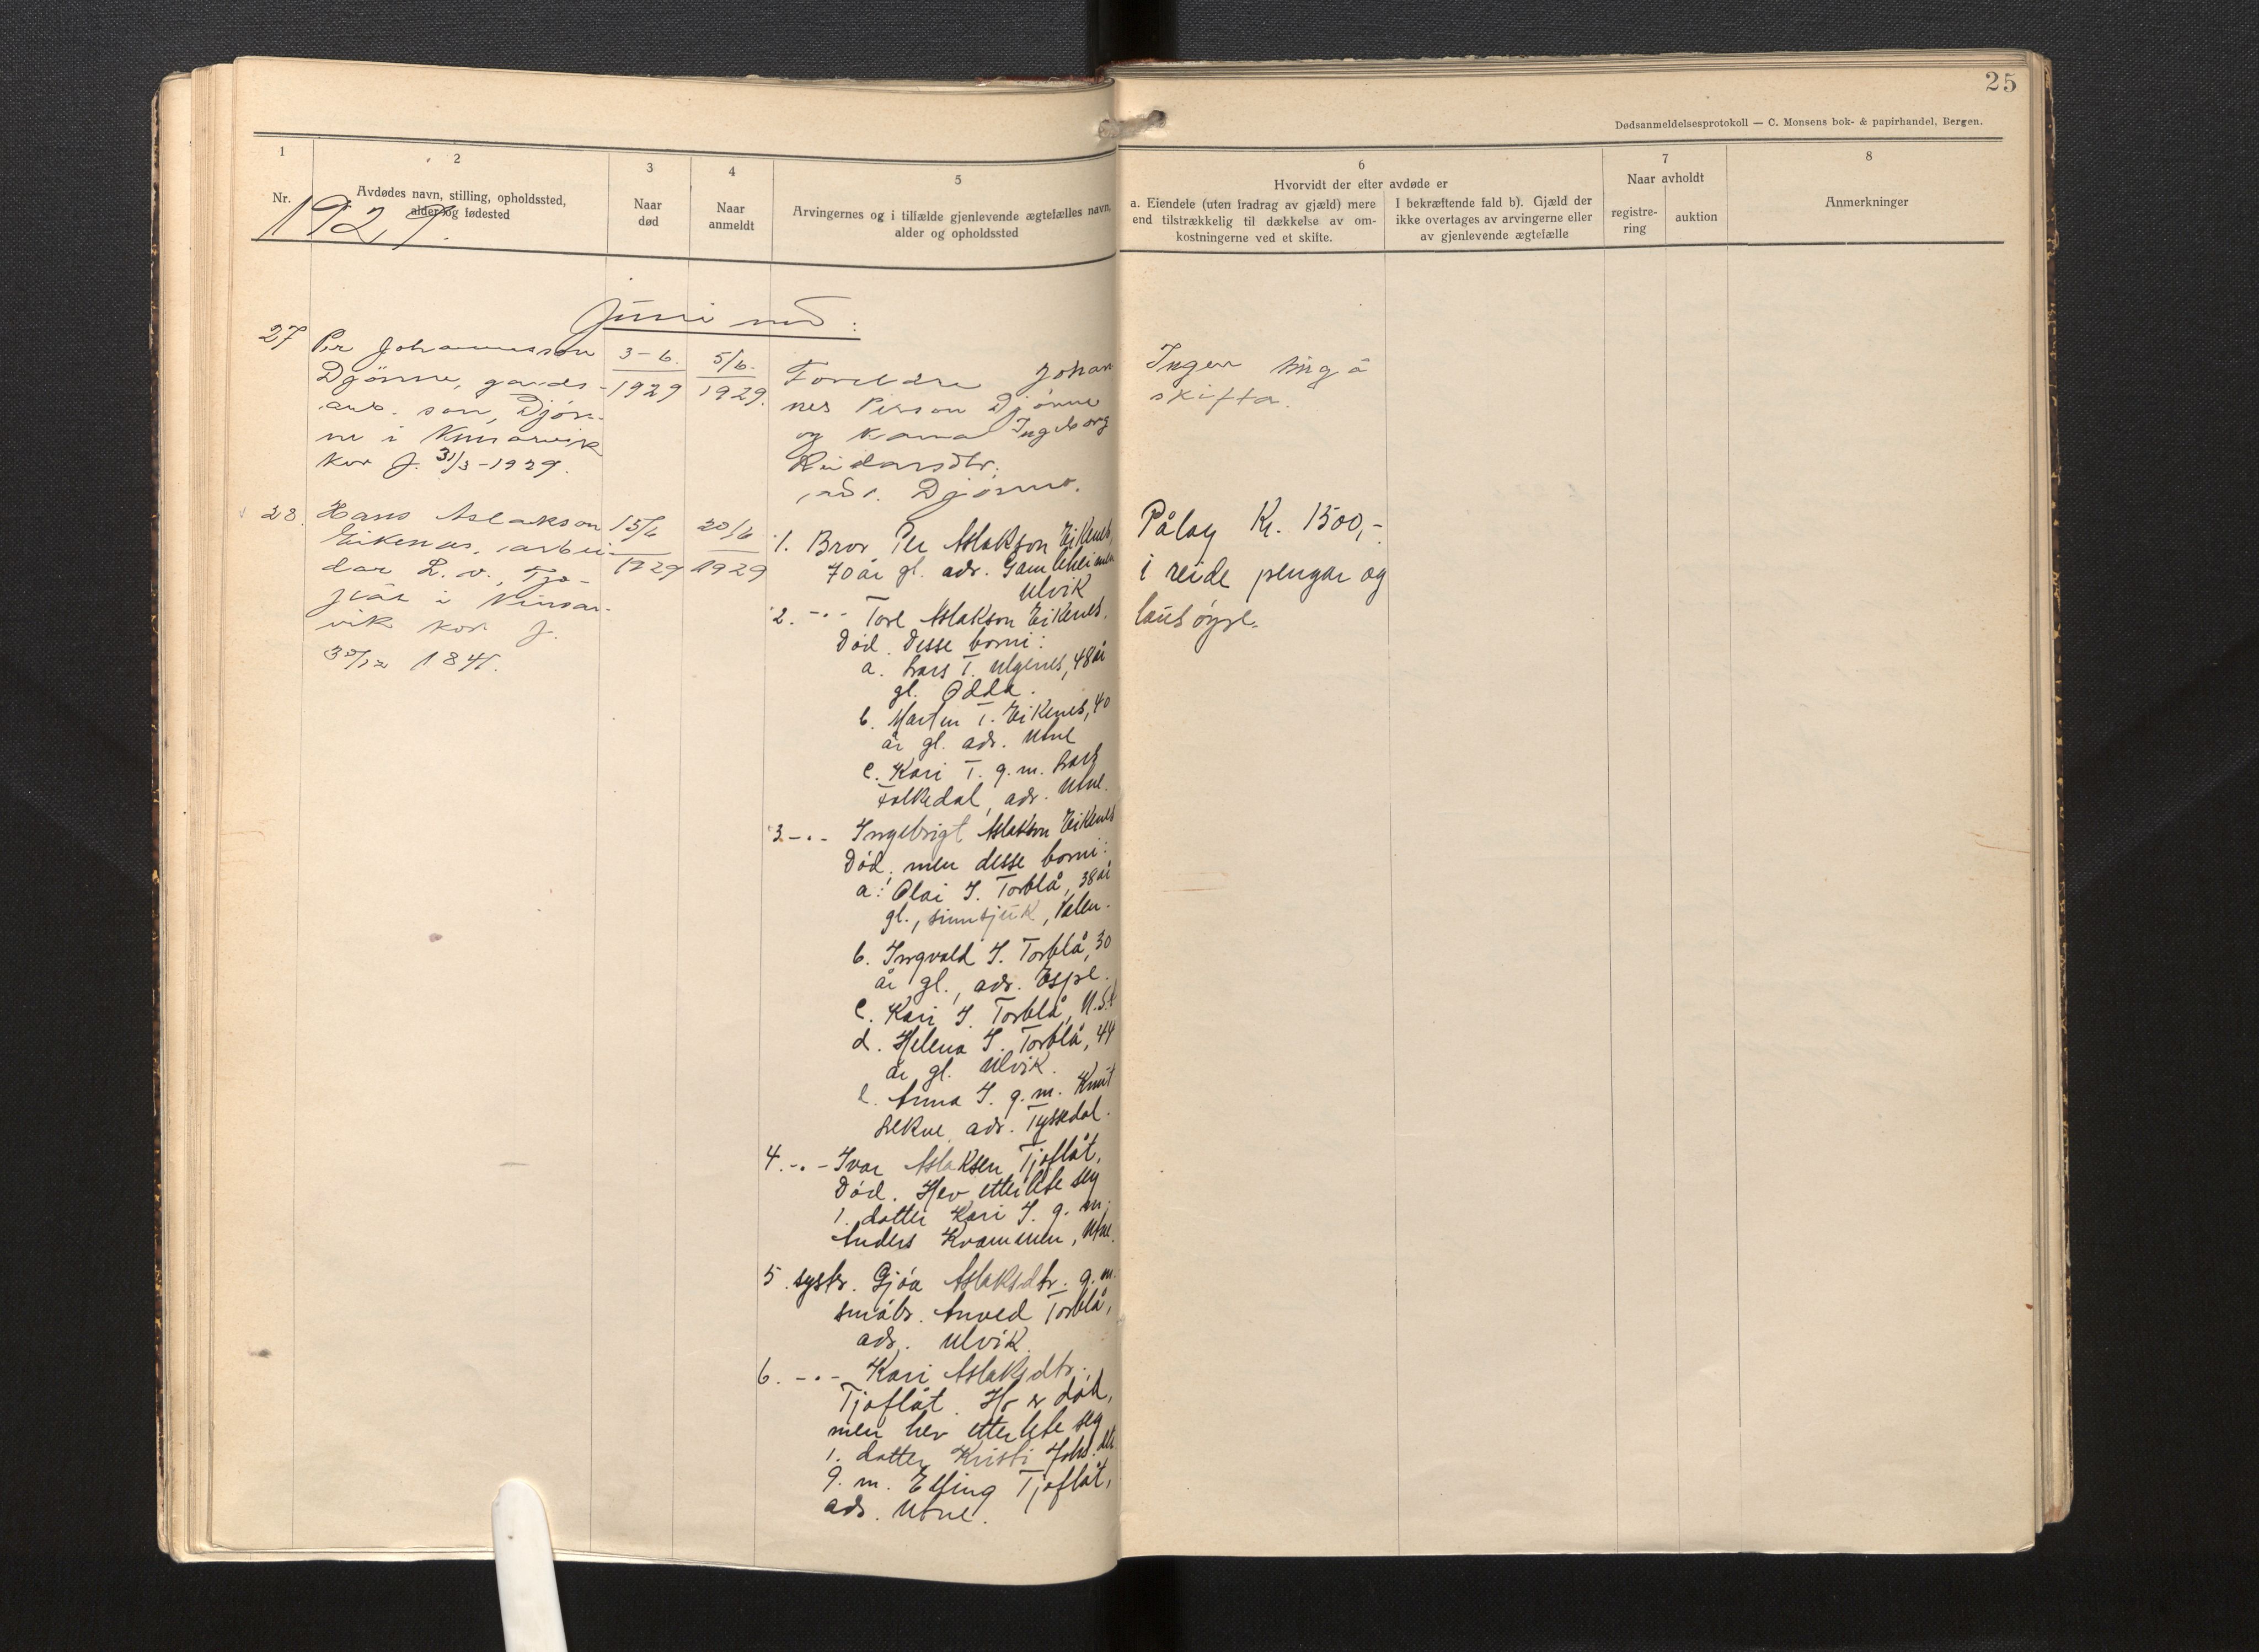 25
Dødsanmeldelsesprotokoll — C. Monsens bok- & papirhandel, Bergen.
1
2
3
4
5
6
7
8
Nr.
Avdødes navn, stilling, opholdssted,
alder og fødested
Naar
død
Naar
anmeldt
Arvingernes og i tilfælde gjenlevende ægtefælles navn,
alder og opholdssted
Hvorvidt der efter avdøde er
a. Eiendele (uten fradrag av gjæld) mere
end tilstrækkelig til dækkelse av om-
kostningerne ved et skifte.
I bekræftende fald b). Gjæld der
ikke overtages av arvingerne eller
av gjenlevende ægtefælle
Naar avholdt
registre-
ring
auktion
Anmerkninger
1929.
Juni md:
27
Per Johannesson
Djönne, gards-
arb. son, Djön-
ne i Kinsarvik
kor f. 31/3-1929.
3-6.
1929
5/6.
1929.
Foreldre Johan
nes Person Djönne
og kona Ingeborg
Reidarsdtr.
ads. Djönne.
Ingen ting å
skifta.
28
Hans Aslakson
Eikenes, arbei-
dar L. v., Tjo-
flåt i Kinsar-
vik kor f.
30/12 1841.
15/6
1929
20/6
1929
1. Bror Per Aslakson Eikenes,
70 år gl. adr. Gamleheimen
Ulvik
2. -"- Tore Aslakson Eikenes.
Död. Desse borni:
a. Lars T. Ulgenes, 48 år
gl. Odda.
b. Martin T. Eikenes, 40
år gl. adr. Utne
c. Kari T. g. m. Lars
Folkedal, adr. Utne.
3 -"- Ingebrigt Aslakson Eikenes
Död, men desse borni:
a. Olai I. Torblå, 38 år
gl., sinnsjuk, Valen.
b. Ingvald I. Torblå, 30
år gl., adr. Espe.
c. Kari I. Torblå, U.S.A
d. Helena I. Torblå, 44
år gl. Ulvik.
e. Anna I. g. m. Knut
Lekve adr. Tyssedal.
4. -"- Ivar Aslaksen Tjoflåt.
Död. Hev etterlete seg
1. dotter Kari I. g. m.
Anders Kvammen, Utne.
5. systr. Gjöa Aslaksdtr. g. m.
småbr. Anved Torblå,
adr. Ulvik.
6. -"- Kari Aslaksdtr.
Tjoflåt. Ho er död,
men hev etterlete seg
1. dotter Kristi Johs.dtr.
g. m. Elling Tjoflåt,
adr. Utne.
Pålag Kr. 1500,-
i reide pengar og
lausöyre.